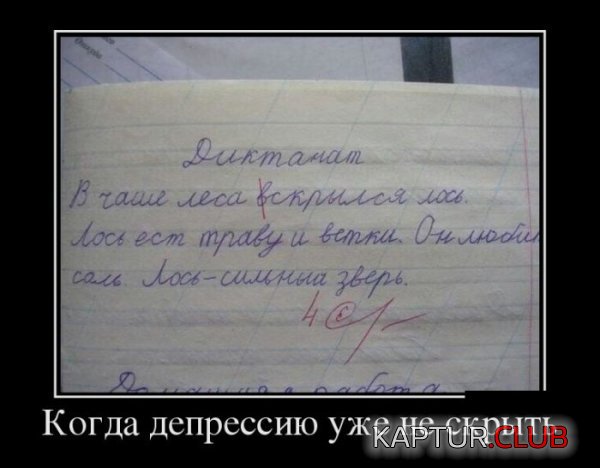 Диктанат
В чаше леса вскрылся лось.
Лось ест траву и ветки. Он любит
соль. Лось-сильный зверь.
4
работа
Когда депрессию уже не скрыть
KAPTUR.CLUB